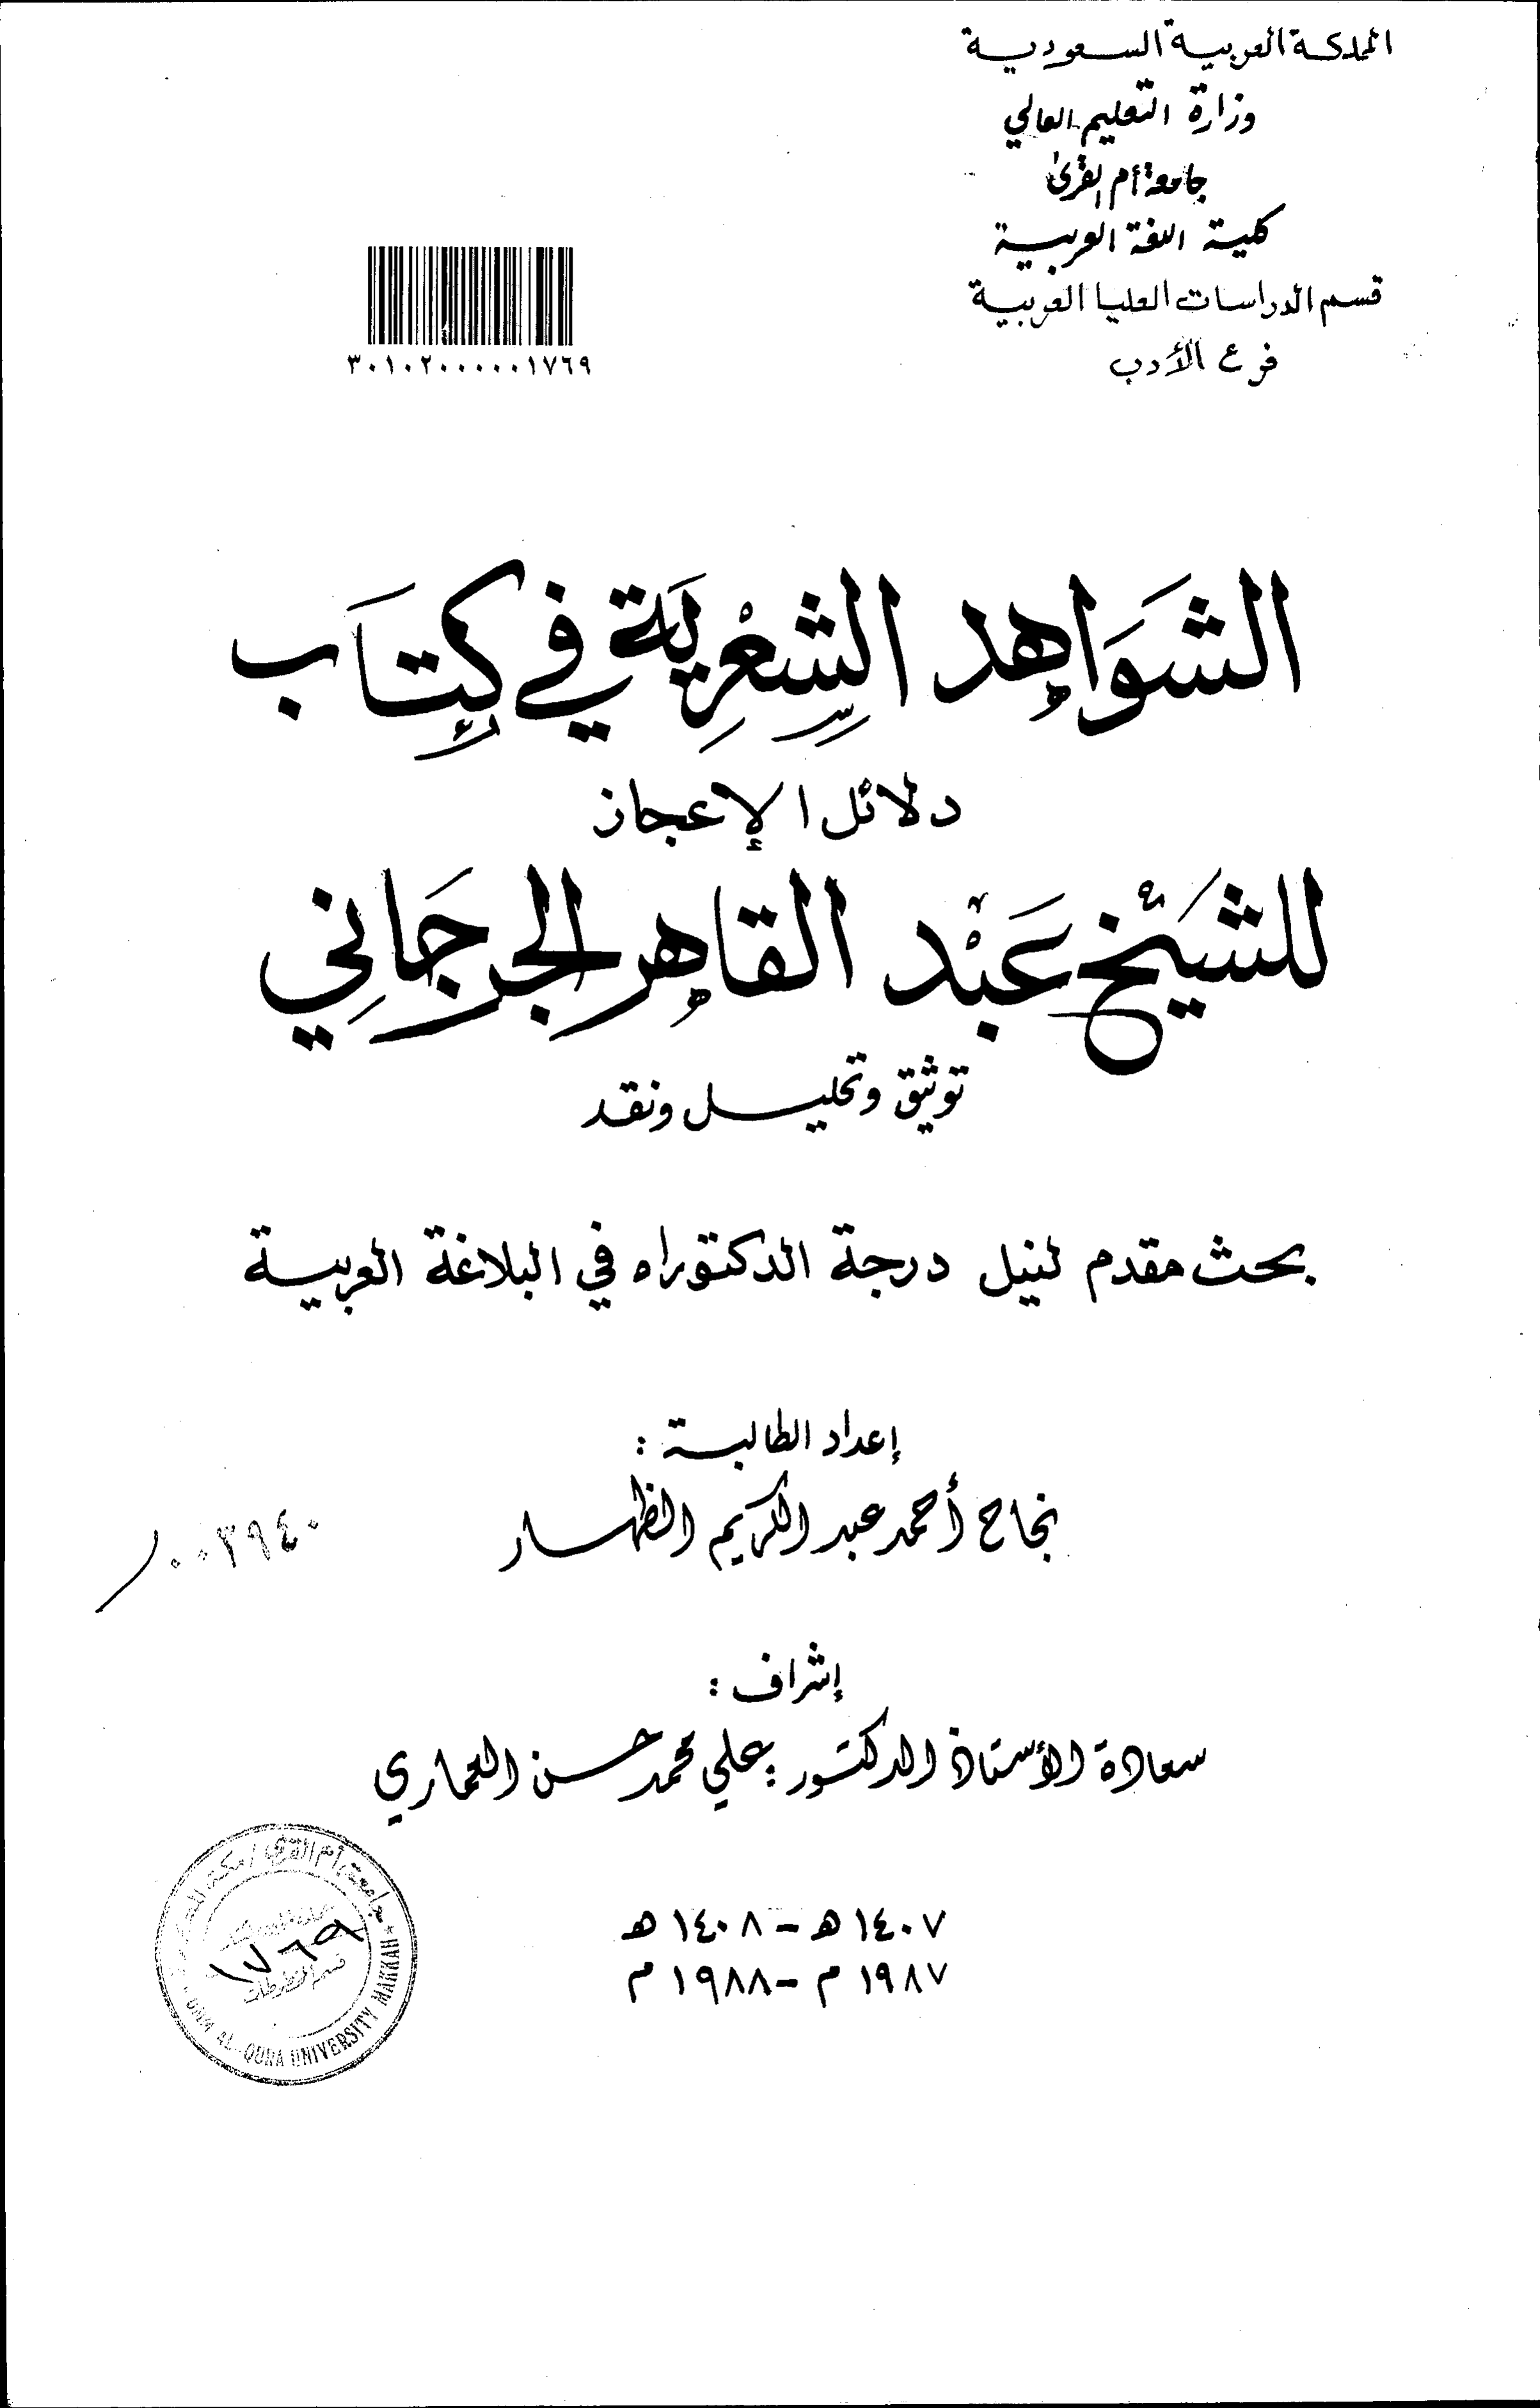 المملكة العربية السعودية
وزارة التعليم العالي
جامعة أم القرى
كلية اللغة العربية
قسم الدراسات العليا العربية
فرع الأدب
٣٠١٠٢٠٠٠٠٠١٧٦٩
الشَوَاهِد الشِّعْرِيَة في كِتَاب
دلائل الإعجاز
للشَيْخ عَبْد القاهِر الجرجَانِي
توثيق وتحليل ونقد
بحث مقدم لنيل درجة الدكتوراه في البلاغة العربية
إعداد الطالبة :
نجاح أحمد عبد الكريم الظهار
٠٠٣٩٤٠
إشراف :
سعادة الأستاذ الدكتور : علي محمد حسن العماري
جامعة أم القرى / مكة
١٧٦٩
قسم المخطوطات
UMM AL-QURA UNIVERSITY MAKKAH
١٤٠٧ هـ - ١٤٠٨ هـ
١٩٨٧ م - ١٩٨٨ م